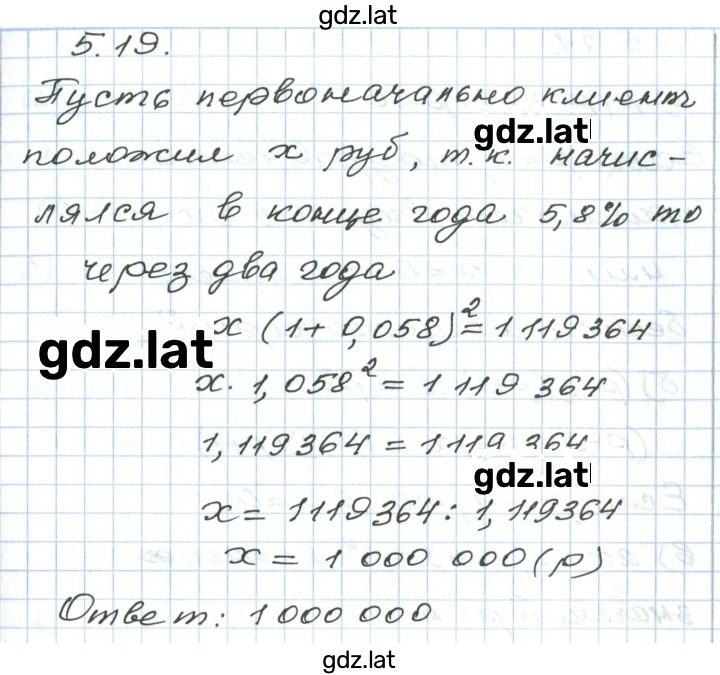 gdz.lat
5.19.
Пусть первоначально клиент
gdz.lat
положил x руб, т.к. начис-
лялся в конце года 5,8% то
через два года
x (1+0,058)² = 1 119 364
gdz.lat
x. 1,058² = 1 119 364
1,119364 = 1 119 364
gdz.lat
x = 1119364 : 1,119364
x = 1 000 000 (р)
Ответ: 1 000 000
gdz.lat